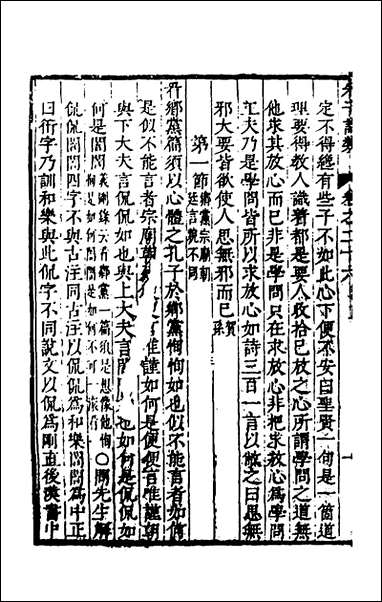 定不得纔有些子不如此心下便不安曰聖賢一句是一箇道
理要得教人識着都是要人收拾已放之心所謂學問之道無
他求其放心而已非是學問只在求放心非把求放心爲學問
工夫乃是學問皆所以求放心如詩三百一言以蔽之曰思無
邪大要皆欲使人思無邪而已賀孫
第一節鄉黨宗廟朝廷言貌不同
看鄉黨篇須以心體之孔子於鄉黨恂恂如也似不能言者如何
是似不能言者宗廟朝唯謹如何是便便言唯謹朝
與下大夫言侃侃如也與上大夫言誾也如何是侃侃如
何是誾誾義剛錄云看鄉黨一篇須是想像他恂恂是如何誾誾是如何不可一滾看○問先生解
侃侃誾誾四字不與古注同古注以侃侃爲和樂誾誾爲中正
曰衎字乃訓和樂與此侃字不同說文以侃爲剛直後漢書中